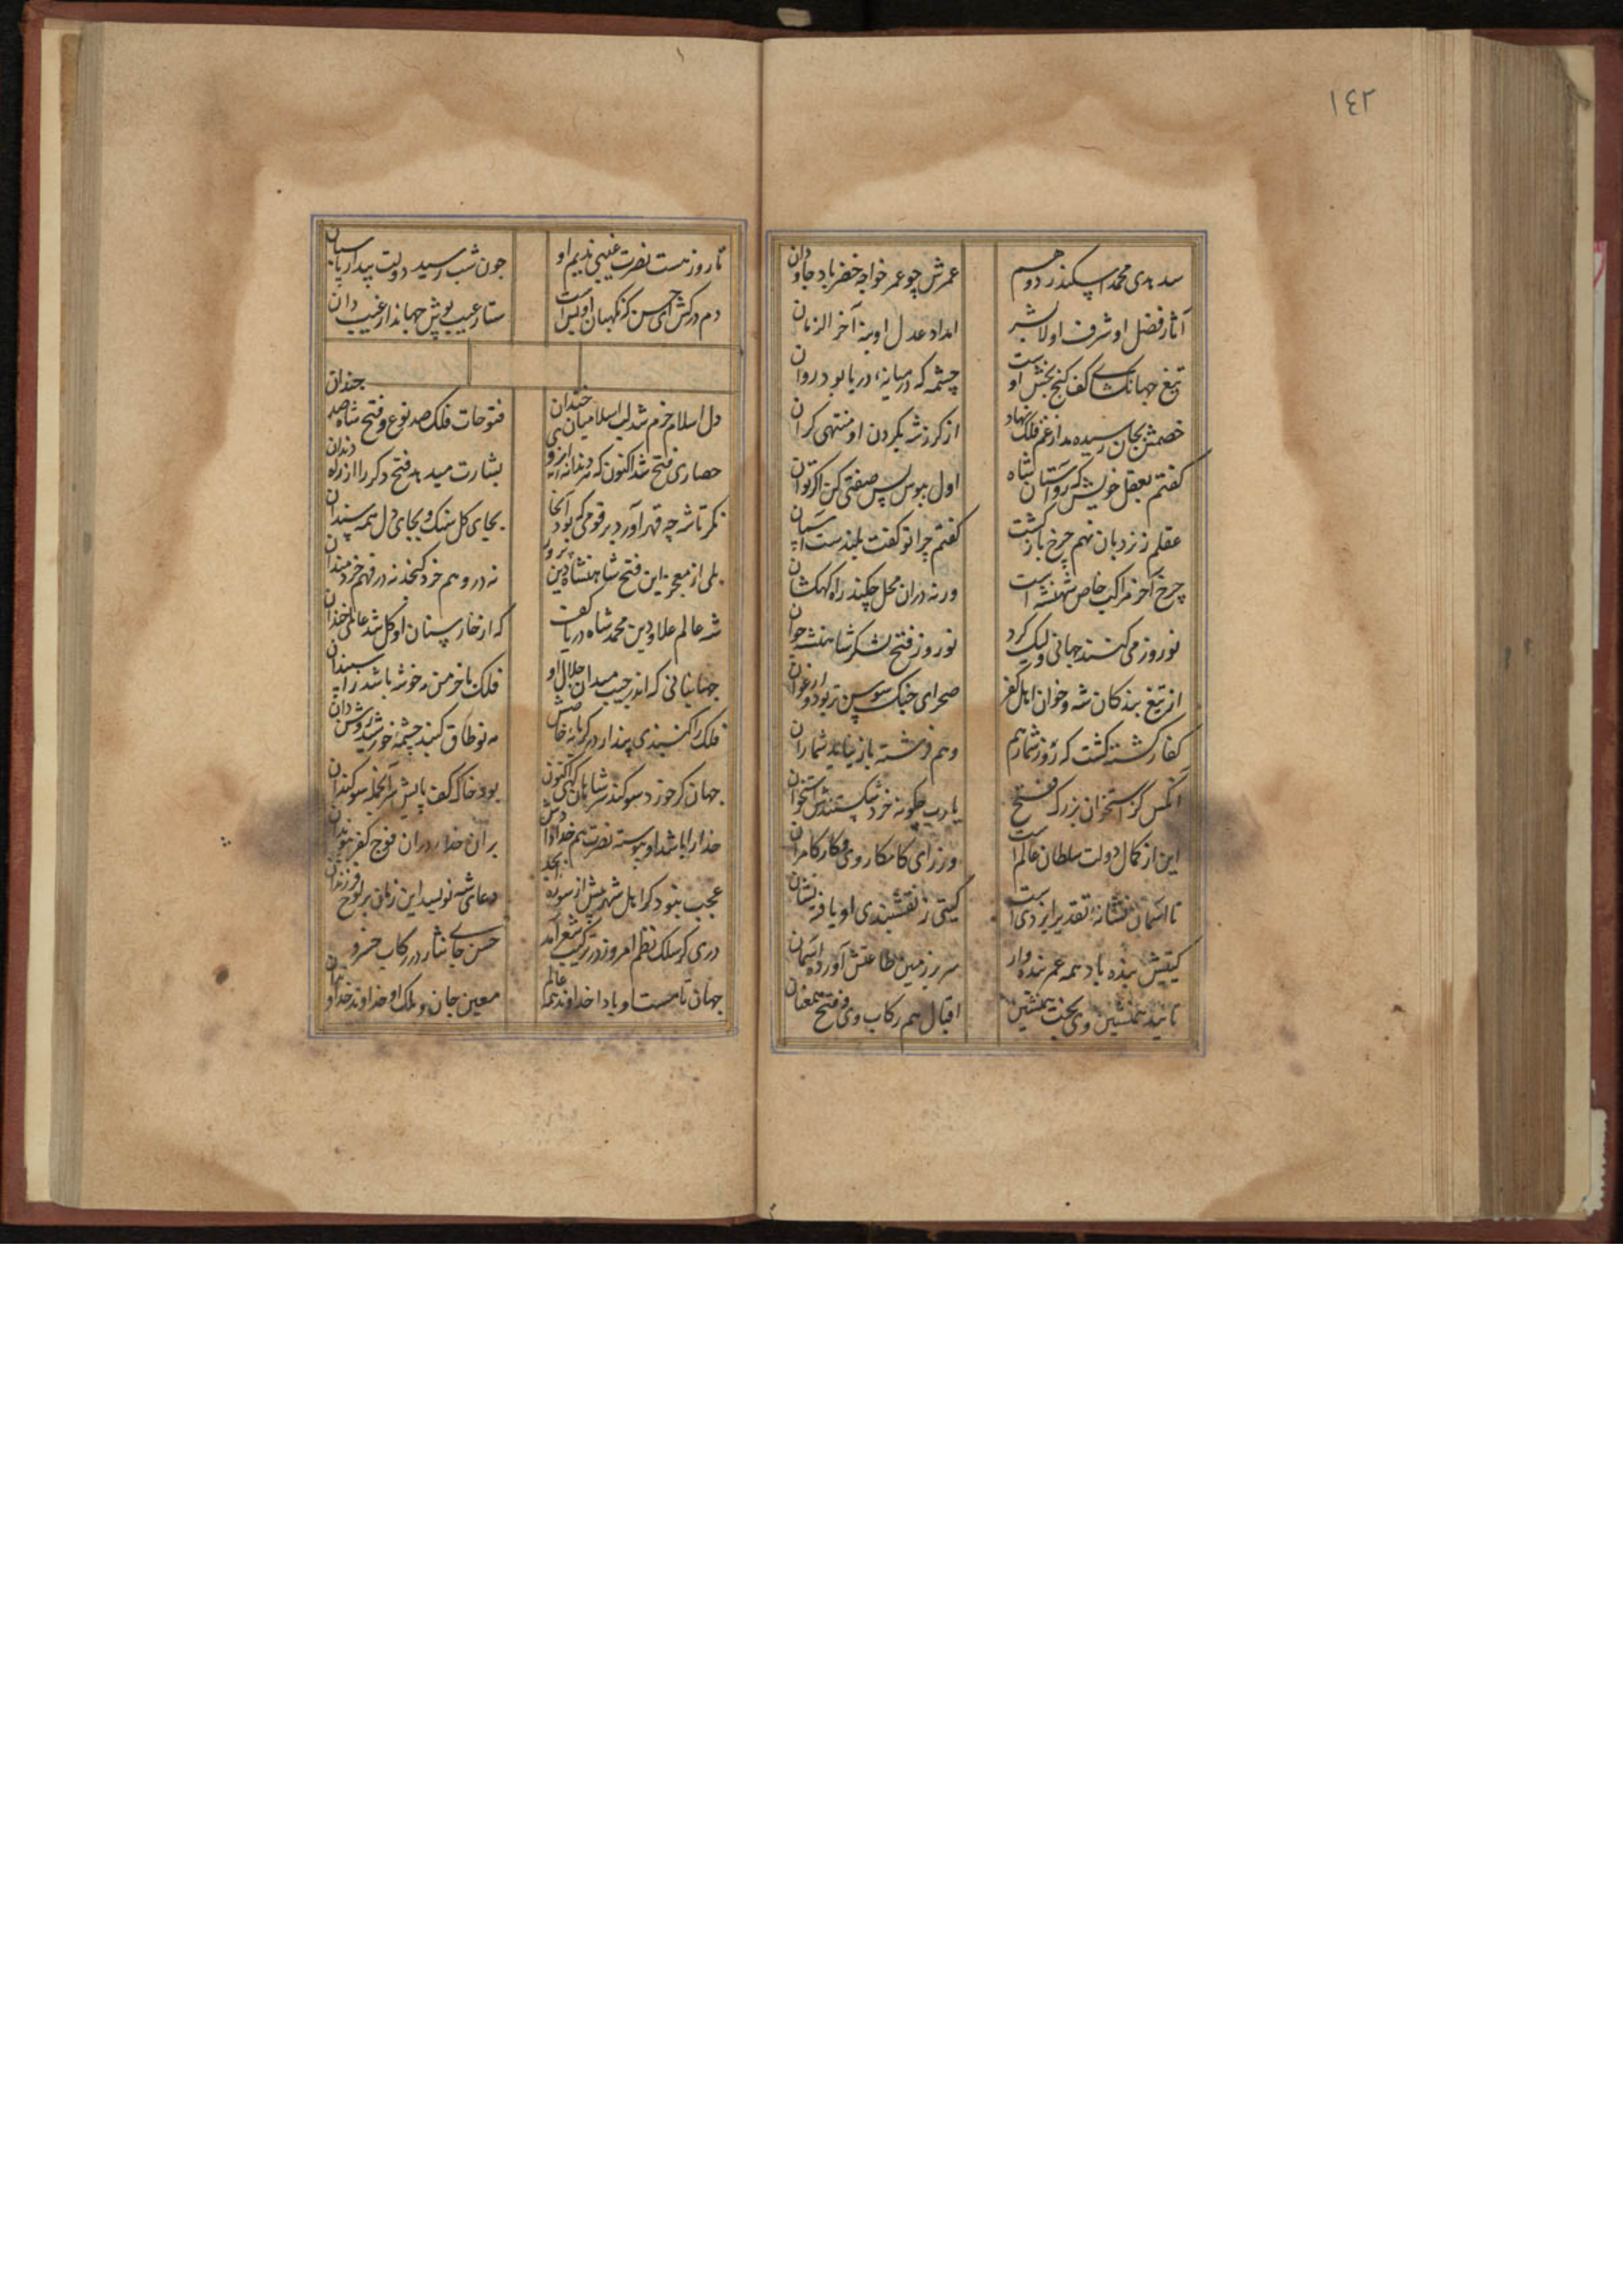 ١٤٢
سد هدی محمد اسکندر دوم
عمرش چو عمر خواجه خضر باد جاودان
آثار فضل او شرف اولا بشر
امداد عدل او بنه آخر الزمان
تیغ جهانکشای کف کنج بخش اوست
چشمه که در میانه دریا بود روان
خصمش بجان رسیده مدار غم فلک نهاد
از کرز شه بکردن او منتهی کران
کفتم بعقل خویش که رو آستان شاه
اول ببوس پس صفتی کن اکر توان
عقلم ز نردبان نهم چرخ باز کشت
کفتم چرا تو کفت بلندست آسمان
چرخ آخر مراکب خاص شهنشه است
ورنه دران محل چکند راه کهکشان
نوروز می کنند جهانی ولیک کرد
نوروز فتح لشکر شاهنشه جوان
از تیغ بندکان شه و خوان اهل کفر
صحرای جنک سوسن تر بود و ارغوان
کفار کشته کشت که روز شمار هم
وهم فرشته باز نیابد شمار آن
آنکس کز استخوان بزرک فتح
یارب چکونه خرد شکستندش استخوان
این از کمال دولت سلطان عالم است
ورز رای کامکار وی و کار کامران
تا آسمان نشانه تقدیر ایزدی است
کیتی ز نقشبندی او یافته نشان
کیتیش بنده باد همه عمر بنده وار
سر بر زمین طاعتش آورده آسمان
تایید همنشین وی بخت همنشین
اقبال هم رکاب وی و فتح همعنان
تا روز هست نصرت غیبی ندیم او
چون شب رسید دولت بیدار پاسبان
دم درکش ای حسن که نکهبان او بس است
ستار عیب پوش جهاندار غیب دان
دل اسلام خرم شد لب اسلامیان خندان
فتوحات فلک صد نوع و فتح شاه صد چندان
حصاری فتح شد اکنون که هر دندانه ای زو
بشارت میدهد فتح دکر را از ره دندان
نکر تا شه چه قهر آورد بر قومی که بود آنجا
بجای کل سنک و بجای دل همه سندان
بلی از معجز این فتح شاهنشاه دین پرور
نه در وهم خرد کنجد نه در فهم خردمندان
شه عالم علاء دین محمد شاه دریا کف
که از خارستان او کل شد عالمی خندان
جهانبانی که اندر جیب میدان جلال او
فلک با خرمن مه خوشه باشد ز اسپندان
فلک را کنبدی پندار در کرمابه خاصش
مه نو طاق کنبد چشمه خورشید روشندان
جهان کر خورد سوکند سر شاهان کهی اکنون
بود خاک کف پایش سرانجمله سوکندان
خدا را باشد او پیوسته نصرت هم خدا دادش
بران خدا دران فوج کفر بندان
عجب نبود کر اهل شهر پیش از سوره ابجد
دعای شه نویسد این زمان بر لوح فرزندان
دری کز سلک نظم امروز در ترکیب شعر آمد
حسن جای نثار در رکاب خسرو
جهان تا هست او بادا خداوند همه عالم
معین جان و ملک او خداوند خداوندان